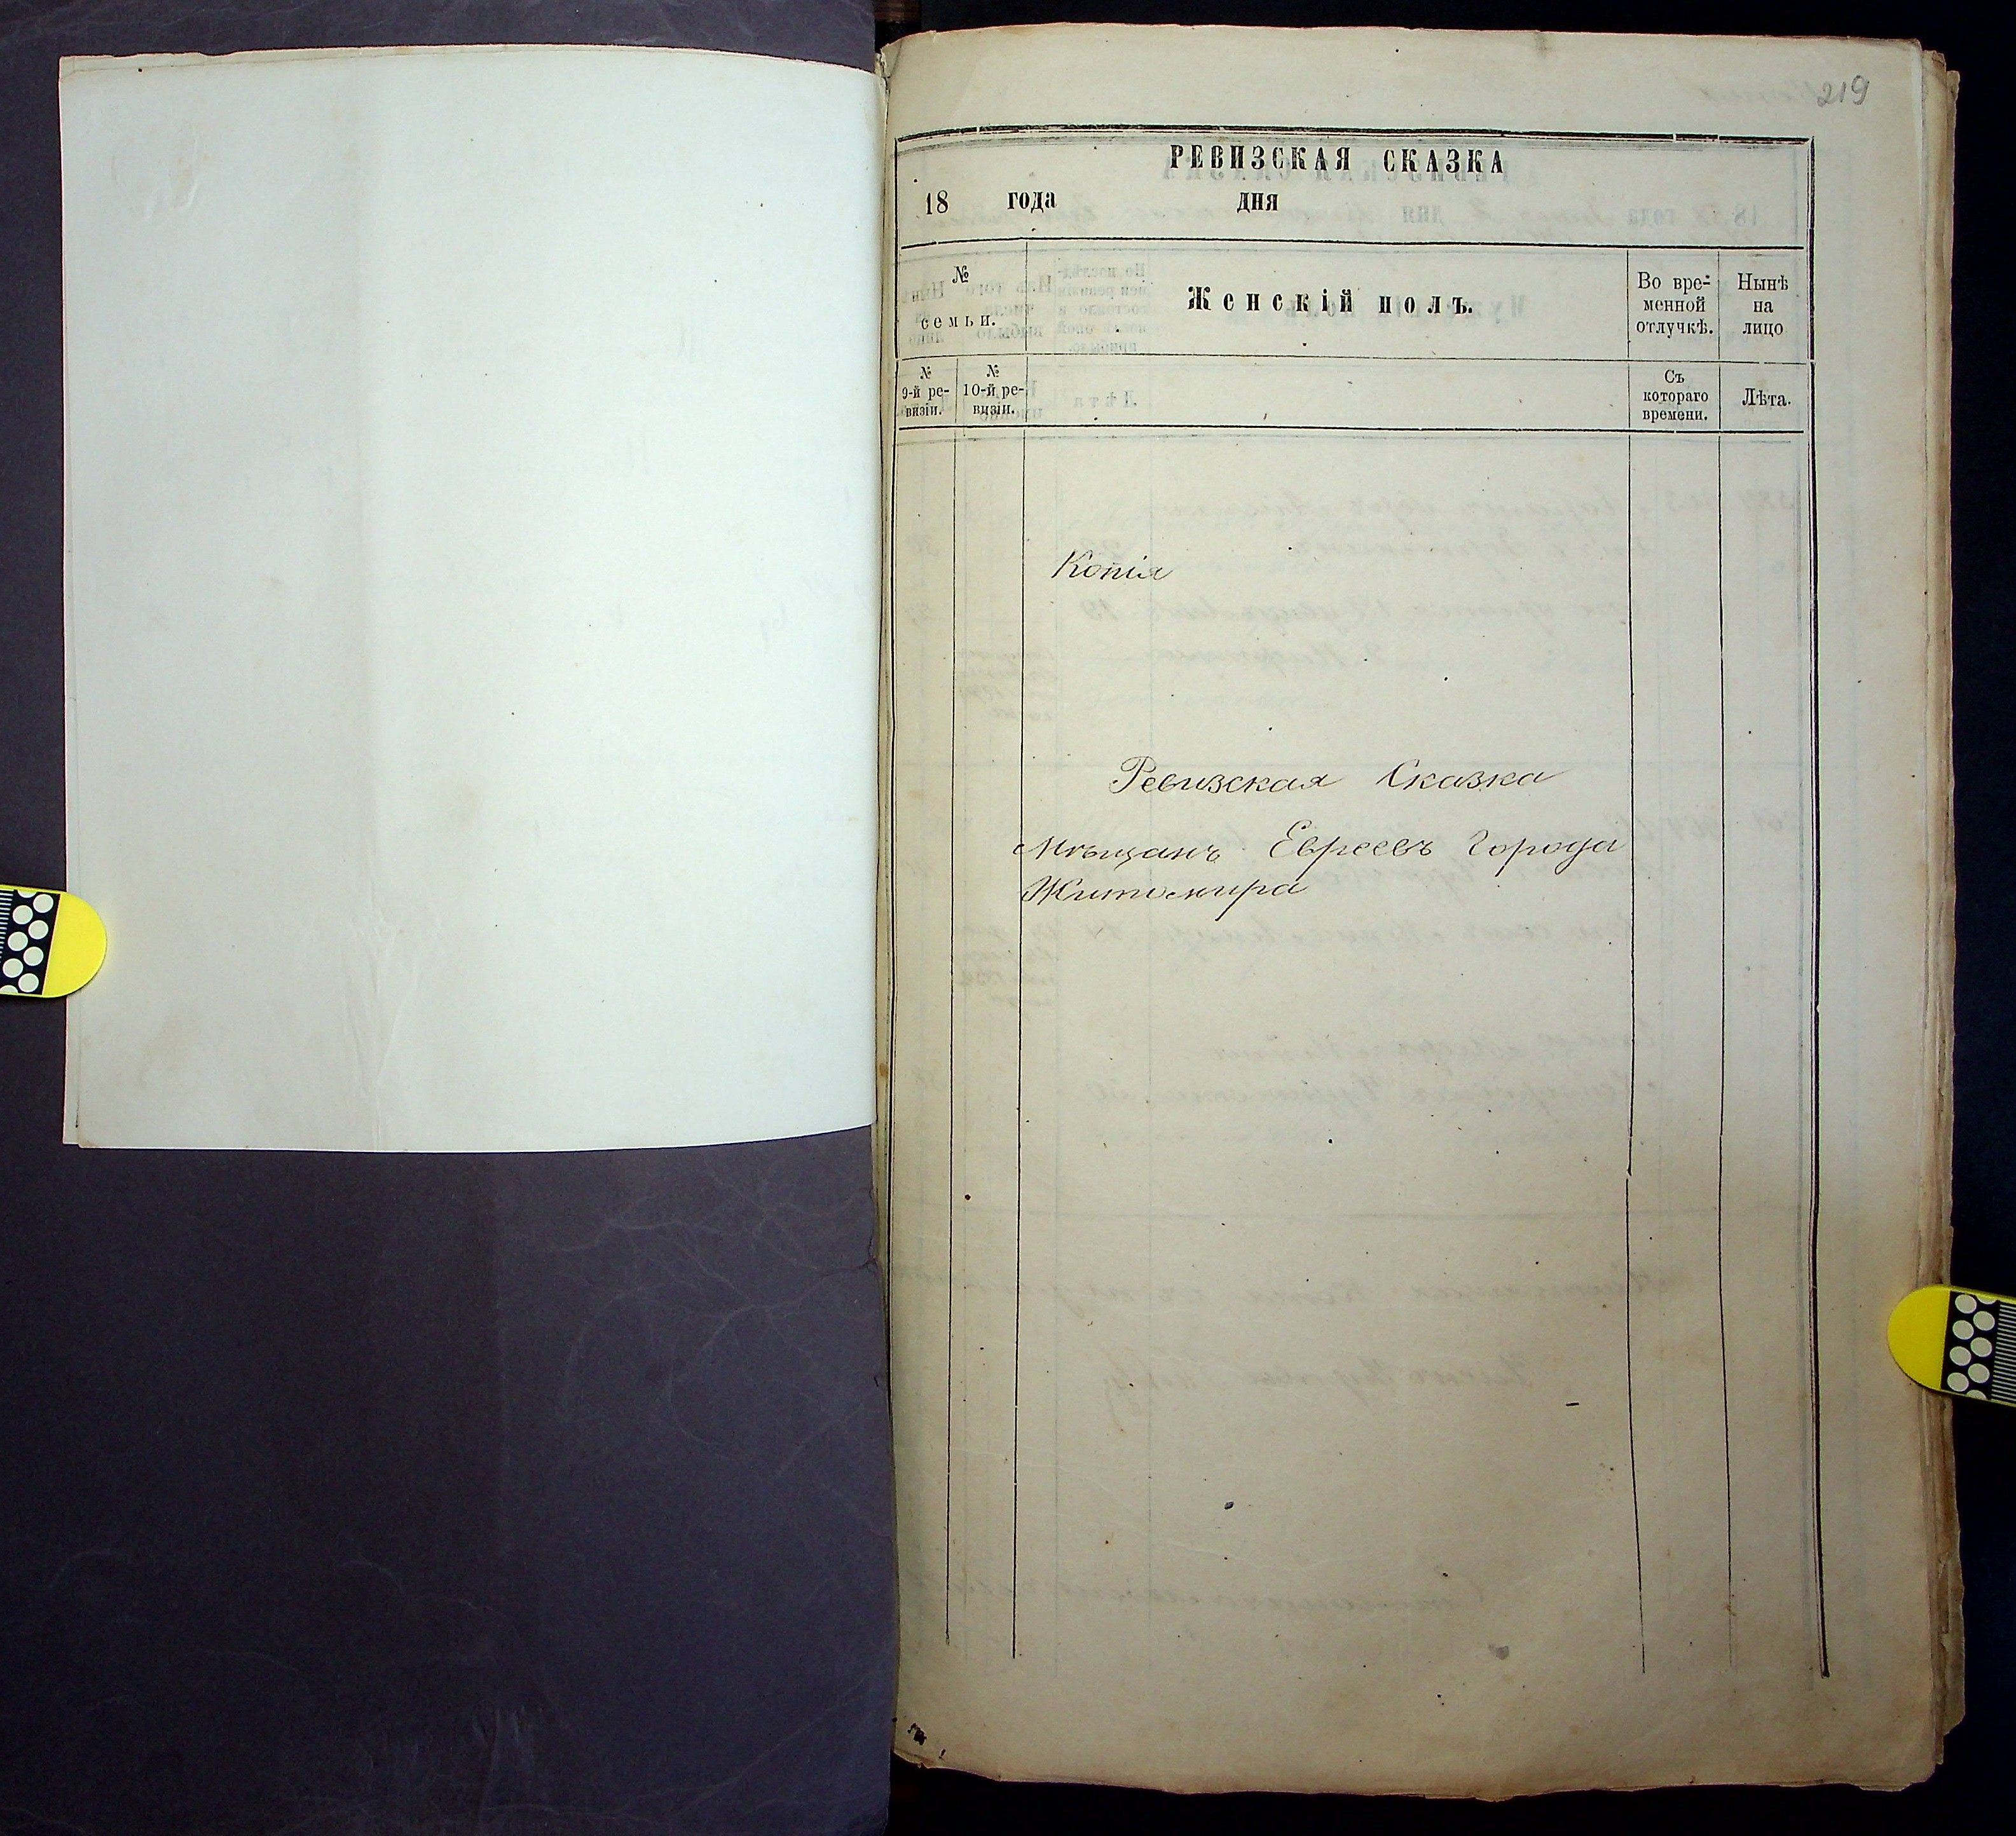 219
РЕВИЗСКАЯ СКАЗКА
18 года дня
№ семьи.
Женскій полъ.
Во вре-
менной
отлучкѣ.
Нынѣ
на
лицо
№
9-й ре-
визіи.
№
10-й ре-
визіи.
Съ
котораго
времени.
Лѣта.
Копія
Ревизская Сказка
Мѣщанъ Евреевъ Города
Житомира